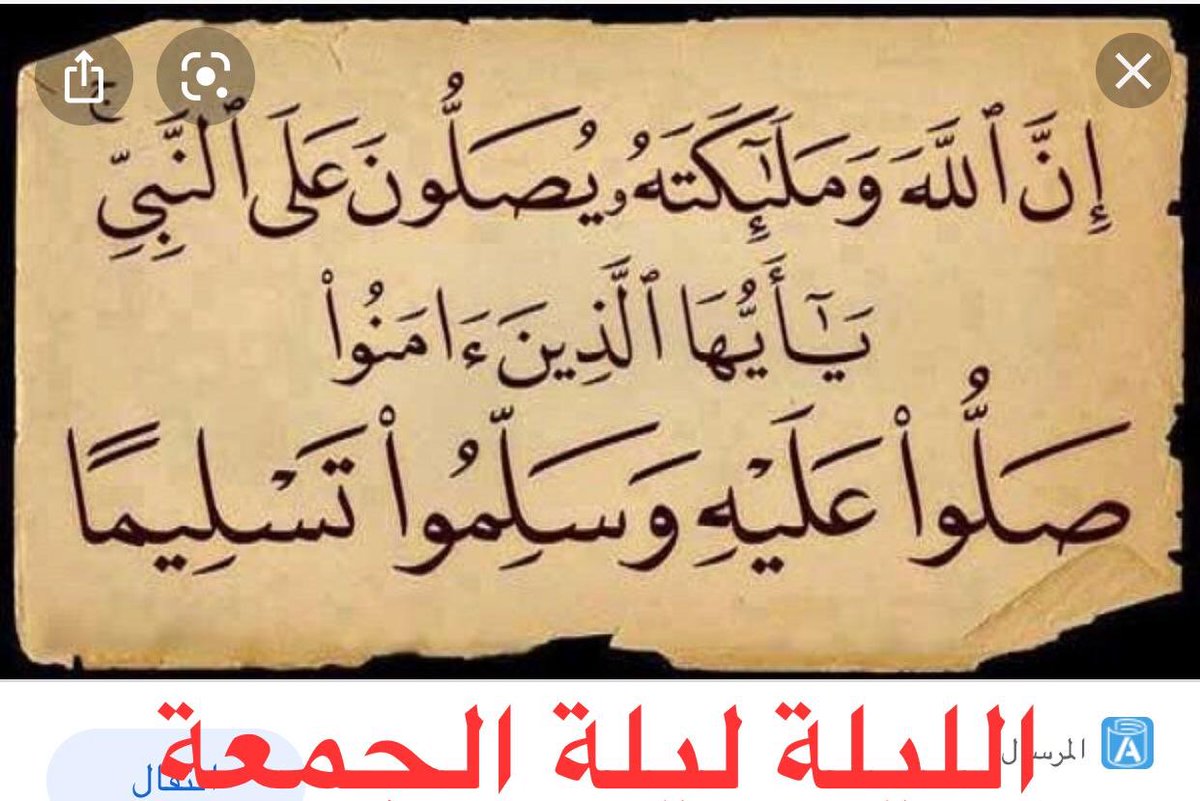 إِنَّ ٱللَّهَ وَمَلَٰٓئِكَتَهُۥ يُصَلُّونَ عَلَى ٱلنَّبِىِّ ۚ
يَٰٓأَيُّهَا ٱلَّذِينَ ءَامَنُوا۟
صَلُّوا۟ عَلَيْهِ وَسَلِّمُوا۟ تَسْلِيمًا
الليلة ليلة الجمعة
المرسال